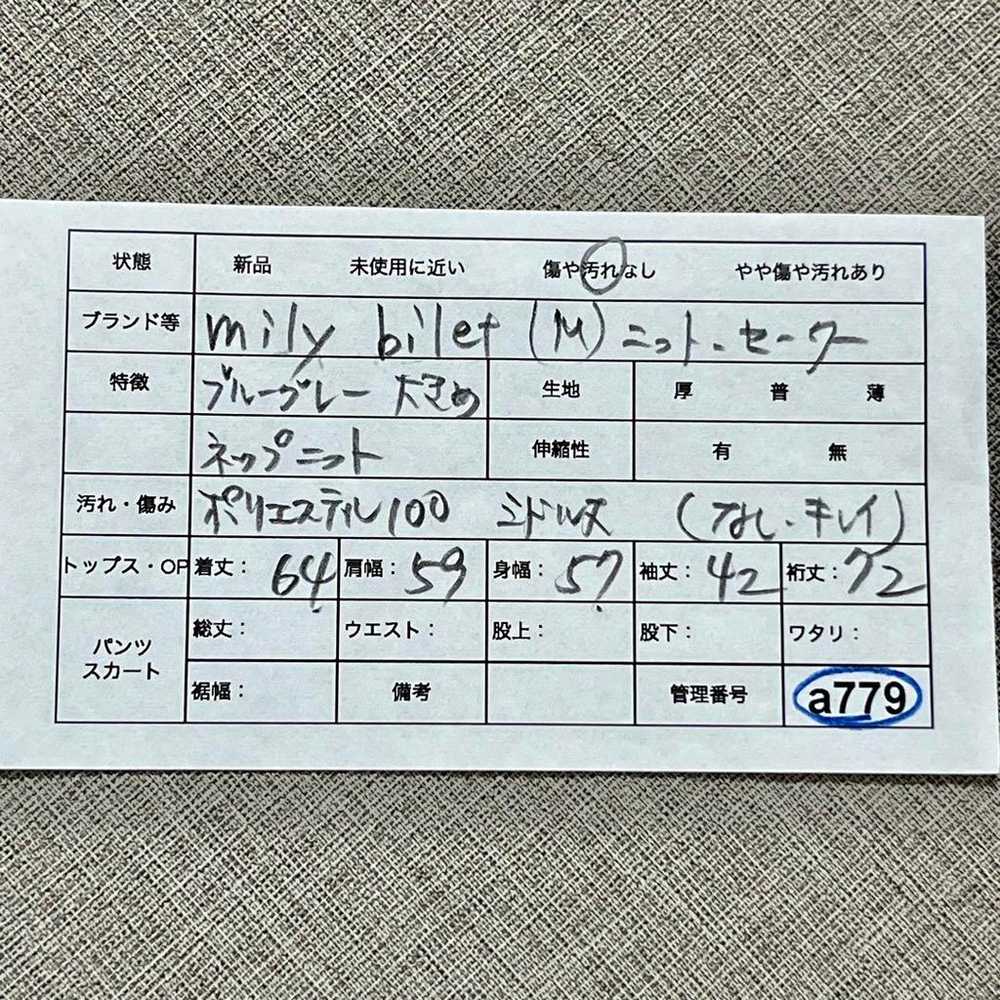 状態 新品 未使用に近い 傷や汚れなし やや傷や汚れあり
ブランド等 mily bilet (M) ニット・セーター
特徴 ブルーグレー 大きめ 生地 厚 普 薄
ネップニット 伸縮性 有 無
汚れ・傷み ポリエステル100 ミドル丈 (なし・キレイ)
トップス・OP 着丈: 64 肩幅: 59 身幅: 57 袖丈: 42 裄丈: 72
パンツ スカート 総丈: ウエスト: 股上: 股下: ワタリ:
裾幅: 備考 管理番号 a779